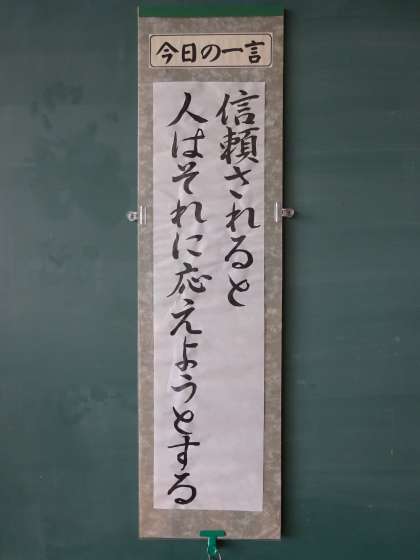 今日の一言
信頼されると
人はそれに応えようとする